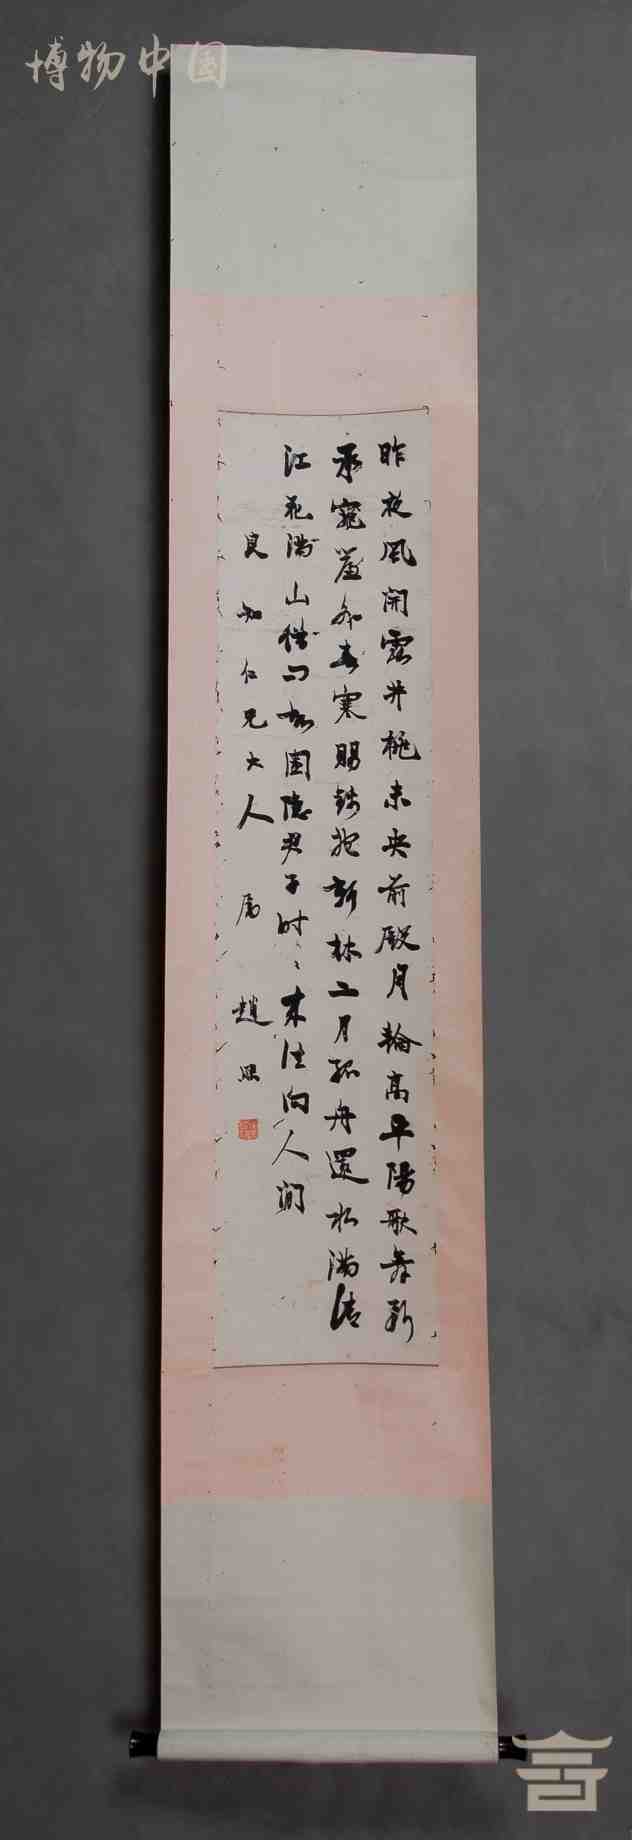 博物中国
昨夜風開露井桃未央前殿月輪高平陽歌舞新
承寵簾外春寒賜錦袍新林二月孤舟還水滿清
江花滿山借問故園隐君子时〻来往向人間
良知仁兄大人 属 趙熙